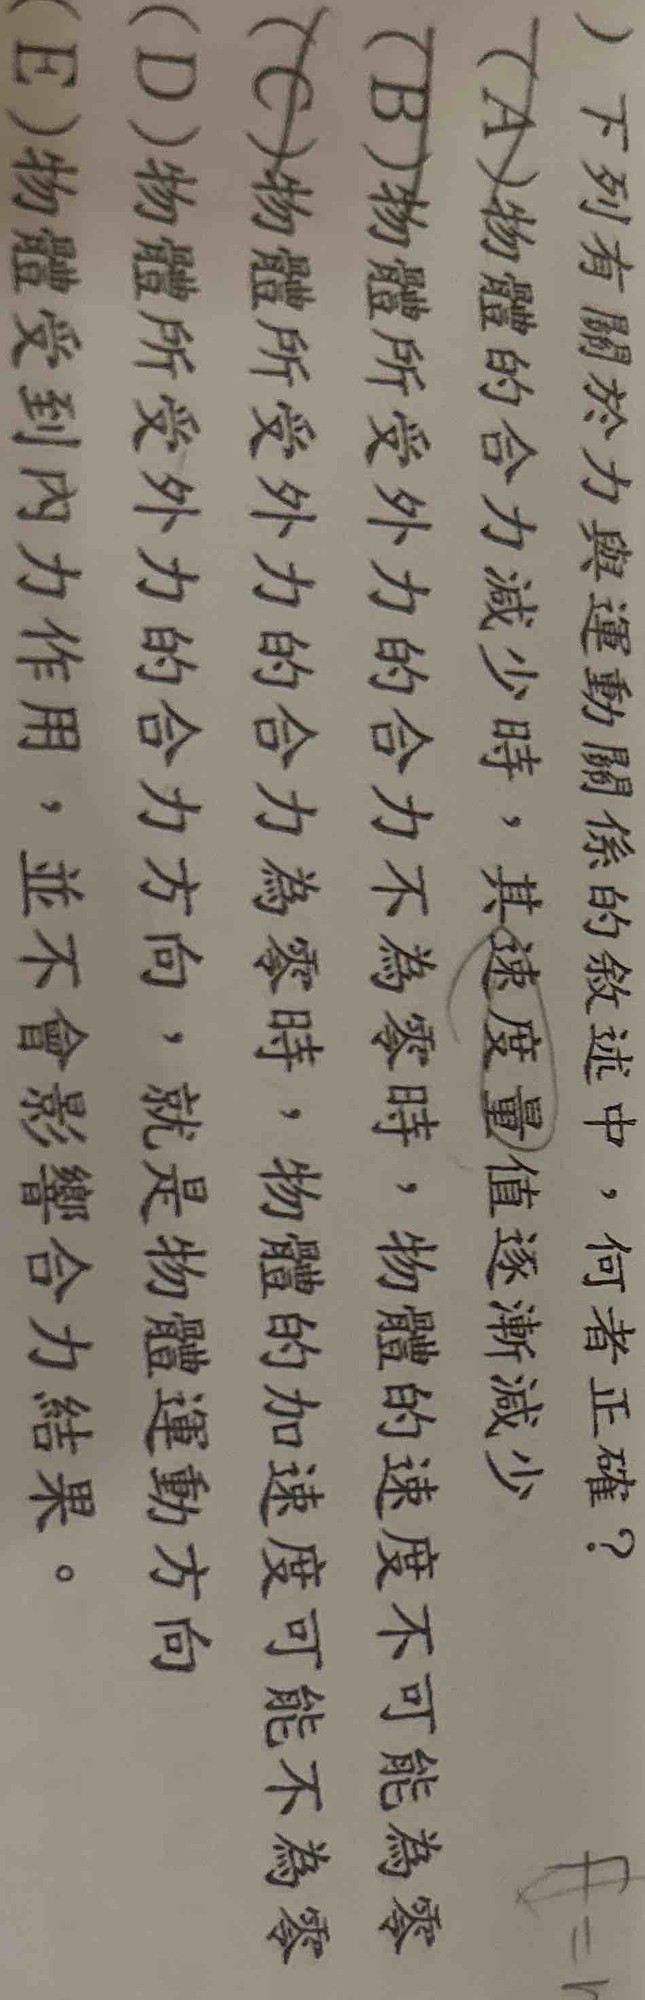 ）下列有關於力與運動關係的敘述中，何者正確？
（A）物體的合力減少時，其速度量值逐漸減少
（B）物體所受外力的合力不為零時，物體的速度不可能為零
（C）物體所受外力的合力為零時，物體的加速度可能不為零
（D）物體所受外力的合力方向，就是物體運動方向
（E）物體受到內力作用，並不會影響合力結果。